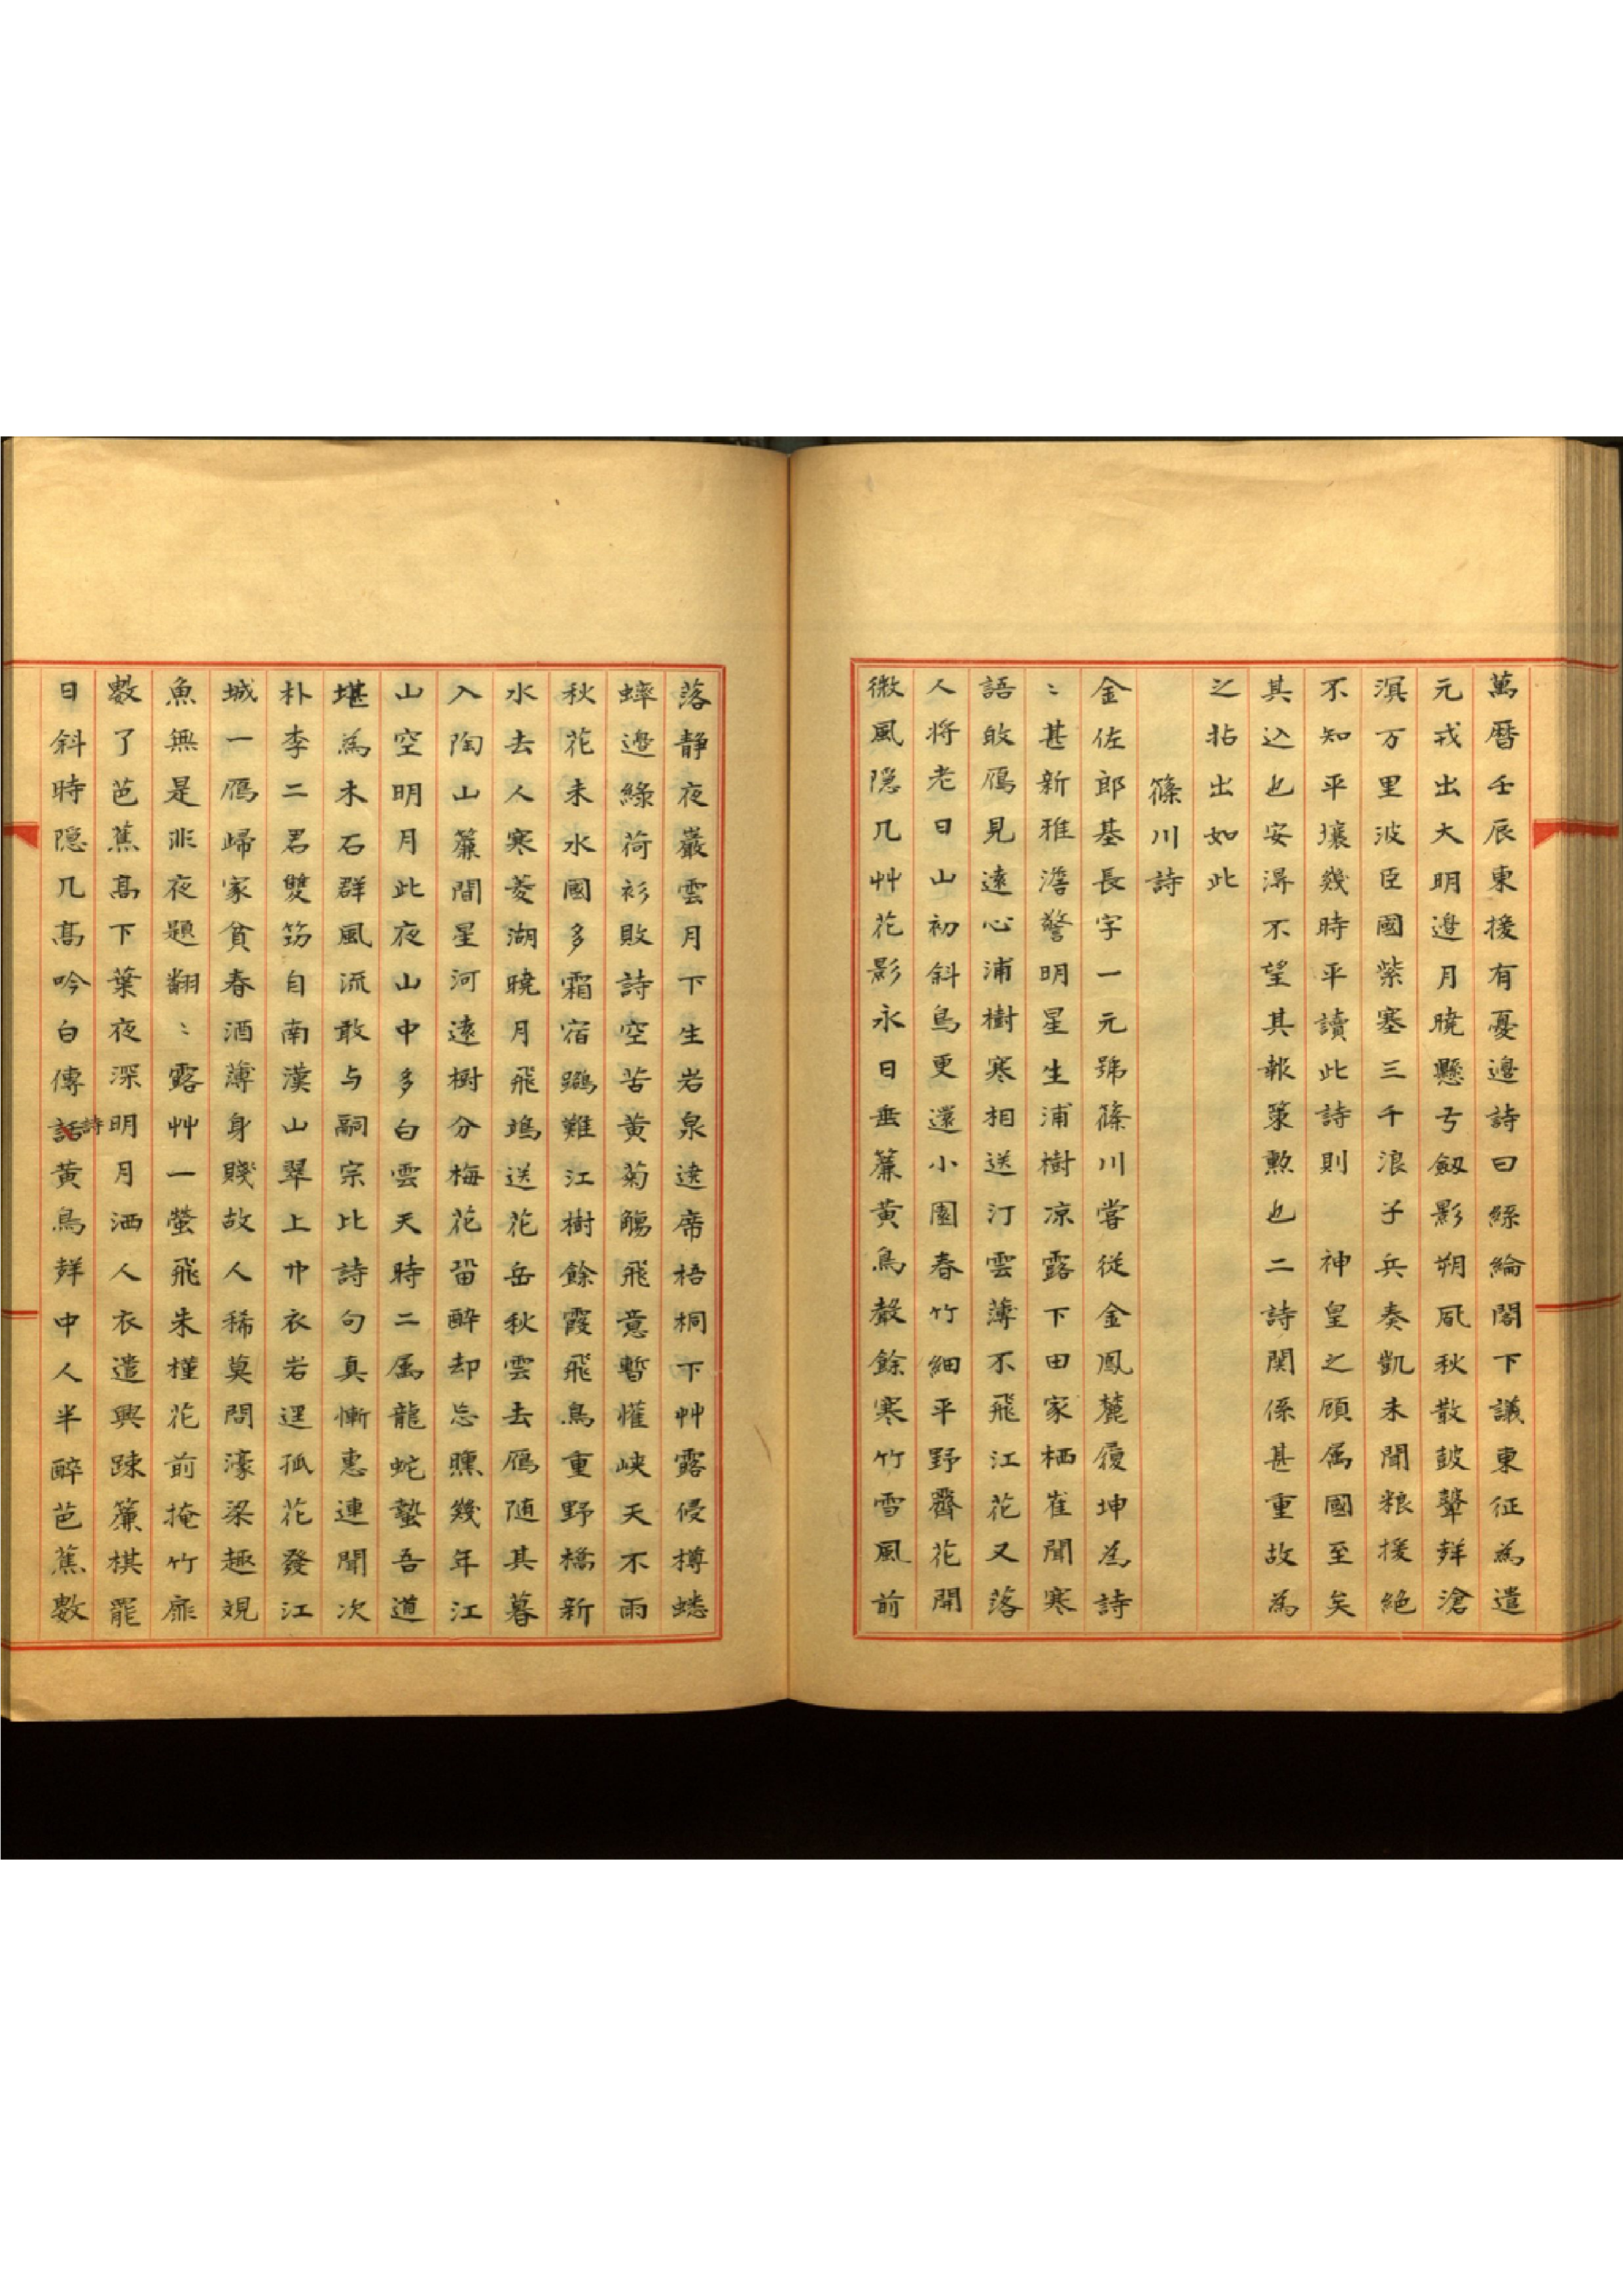 萬曆壬辰東援有憂邊詩曰絲綸閣下議東征為遣
元戎出大明邉月曉懸弓劔影朔風秋散皷鼙聲滄
溟万里波臣國紫塞三千浪子兵奏凱未聞粮援絶
不知平壤幾時平讀此詩則　神皇之顧属國至矣
其込也安淂不望其報䇿勲也二詩関係甚重故為
之拈出如此
篠川詩
金佐郎基長字一元號篠川嘗從金鳳麓履坤為詩
〻甚新雅澹警明星生浦樹凉露下田家栖雀聞寒
語敀鴈見遠心浦樹寒相送汀雲薄不飛江花又落
人将老日山初斜鳥更還小園春竹細平野齊花開
微風隠几艸花影永日垂簾黄鳥聲餘寒竹雪風前
落静夜巖雲月下生岩泉逺席梧桐下艸露侵樽蟋
蟀邉綠荷衫敗詩空苦黄菊觴飛意暫懽峡天不雨
秋花未水國多霜宿鷄難江樹餘霞飛鳥重野橋新
水去人寒菱湖曉月飛塢送花岳秋雲去鴈随其暮
入陶山簾間星河遠樹分梅花留醉却忘曛幾年江
山空明月此夜山中多白雲天時二属龍蛇蟄吾道
堪為木石群風流敢与嗣宗比詩句真慚惠連聞次
朴李二君雙笻自南漢山翠上巾衣岩逕孤花發江
城一鴈歸家貧春酒薄身賤故人稀莫問濠梁趣覌
魚無是非夜題翻〻露艸一螢飛朱槿花前掩竹扉
數了芭蕉髙下葉夜深明月洒人衣遣興踈簾棋罷
日斜時隠几髙吟白傳詩黄鳥聲中人半醉芭蕉數